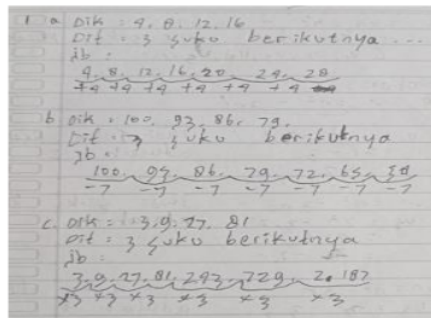 1 a Dik : 4, 8, 12, 16
Dit : 3 suku berikutnya ...
jb :
4, 8, 12, 16, 20, 24, 28
+4 +4 +4 +4 +4 +4
b Dik : 100, 93, 86, 79,
Dit : 3 suku berikutnya
jb :
100, 93, 86, 79, 72, 65, 58
-7 -7 -7 -7 -7 -7 -7
c. Dik : 3, 9, 27, 81
Dit : 3 suku berikutnya
jb :
3, 9, 27, 81, 243, 729, 2.187
×3 ×3 ×3 ×3 ×3 ×3